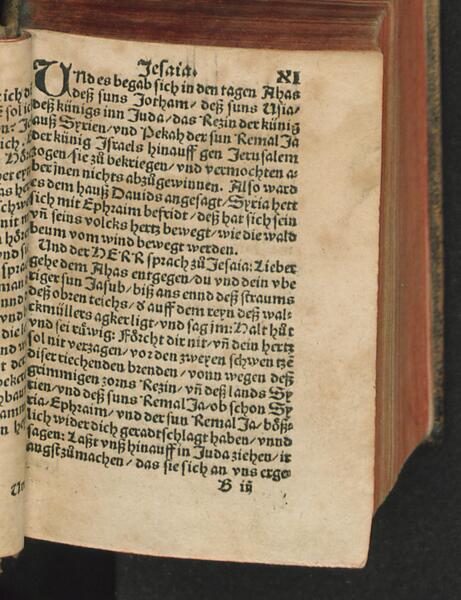 Jesaia. XI
UNd es begab sich in den tagen Ahas
deß suns Jotham/ deß suns Usia/
deß künigs inn Juda/ das Rezin der künig
auß Syrien/ und Pekah der sun RemalJa
der künig Israels hinauff gen Jerusalem
zogen/ sie zů bekriegen/ und vermochten a-
ber jnen nichts abzůgewinnen. Also ward
es dem hauß Davids angesagt/ Syria hett
sich mit Ephraim befridt/ deß hat sich sein
uñ seins volcks hertz bewegt/ wie die wald
beum vom wind bewegt werden.
Und der HERR sprach zů Jesaia: Lieber
gehe dem Ahas entgegen/ du und dein übe
riger sun Jasub/ biß ans ennd deß straums
deß obren teichs/ d auff dem reyn deß wal-
ckmüllers agker ligt/ und sag jm: Halt hůt
und sei růwig: Förcht dit nit/ uñ dein hertz
sol nit verzagen/ vor den zweyen schwentzẽ
diser riechenden brenden/ vonn wegen deß
grimmigen zorns Rezin/ uñ deß lands Sy
rien/ und deß suns RemalJa/ ob schon Sy
ria/ Ephraim/ und der sun RemalJa/ böß-
lich wider dich geradtschlagt haben/ unnd
sagen: Laßt unß hinauff in Juda ziehen/ ir
angst zů machen/ das sie sich an uns erge-
B iij